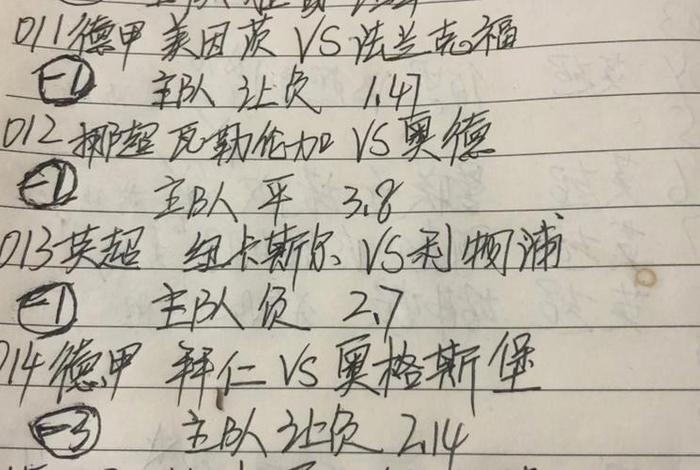 011德甲 美因茨 VS 法兰克福
-1 主队 让负 1.47
012挪超 瓦勒伦加 VS 奥德
-1 主队 平 3.8
013英超 纽卡斯尔 VS 利物浦
-1 主队 负 2.7
014德甲 拜仁 VS 奥格斯堡
-3 主队 让负 2.14